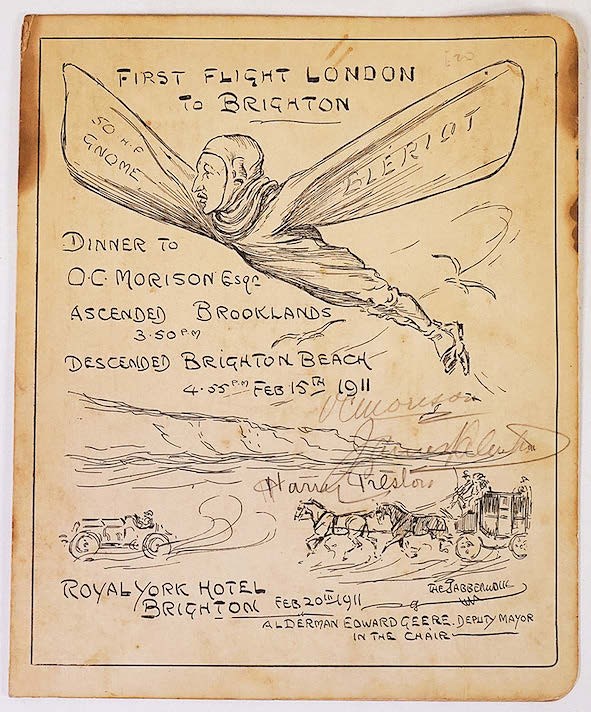 FIRST FLIGHT LONDON
TO BRIGHTON
50 H.P
GNOME
BLÉRIOT
DINNER TO
O.C. MORISON Esqre
ASCENDED BROOKLANDS
3.50 PM
DESCENDED BRIGHTON BEACH
4.55 PM FEB 15TH 1911
OC Morison
Harry Preston
ROYAL YORK HOTEL
BRIGHTON FEB 20TH 1911
THE JABBERWOCK
ALDERMAN EDWARD GEERE. DEPUTY MAYOR
IN THE CHAIR